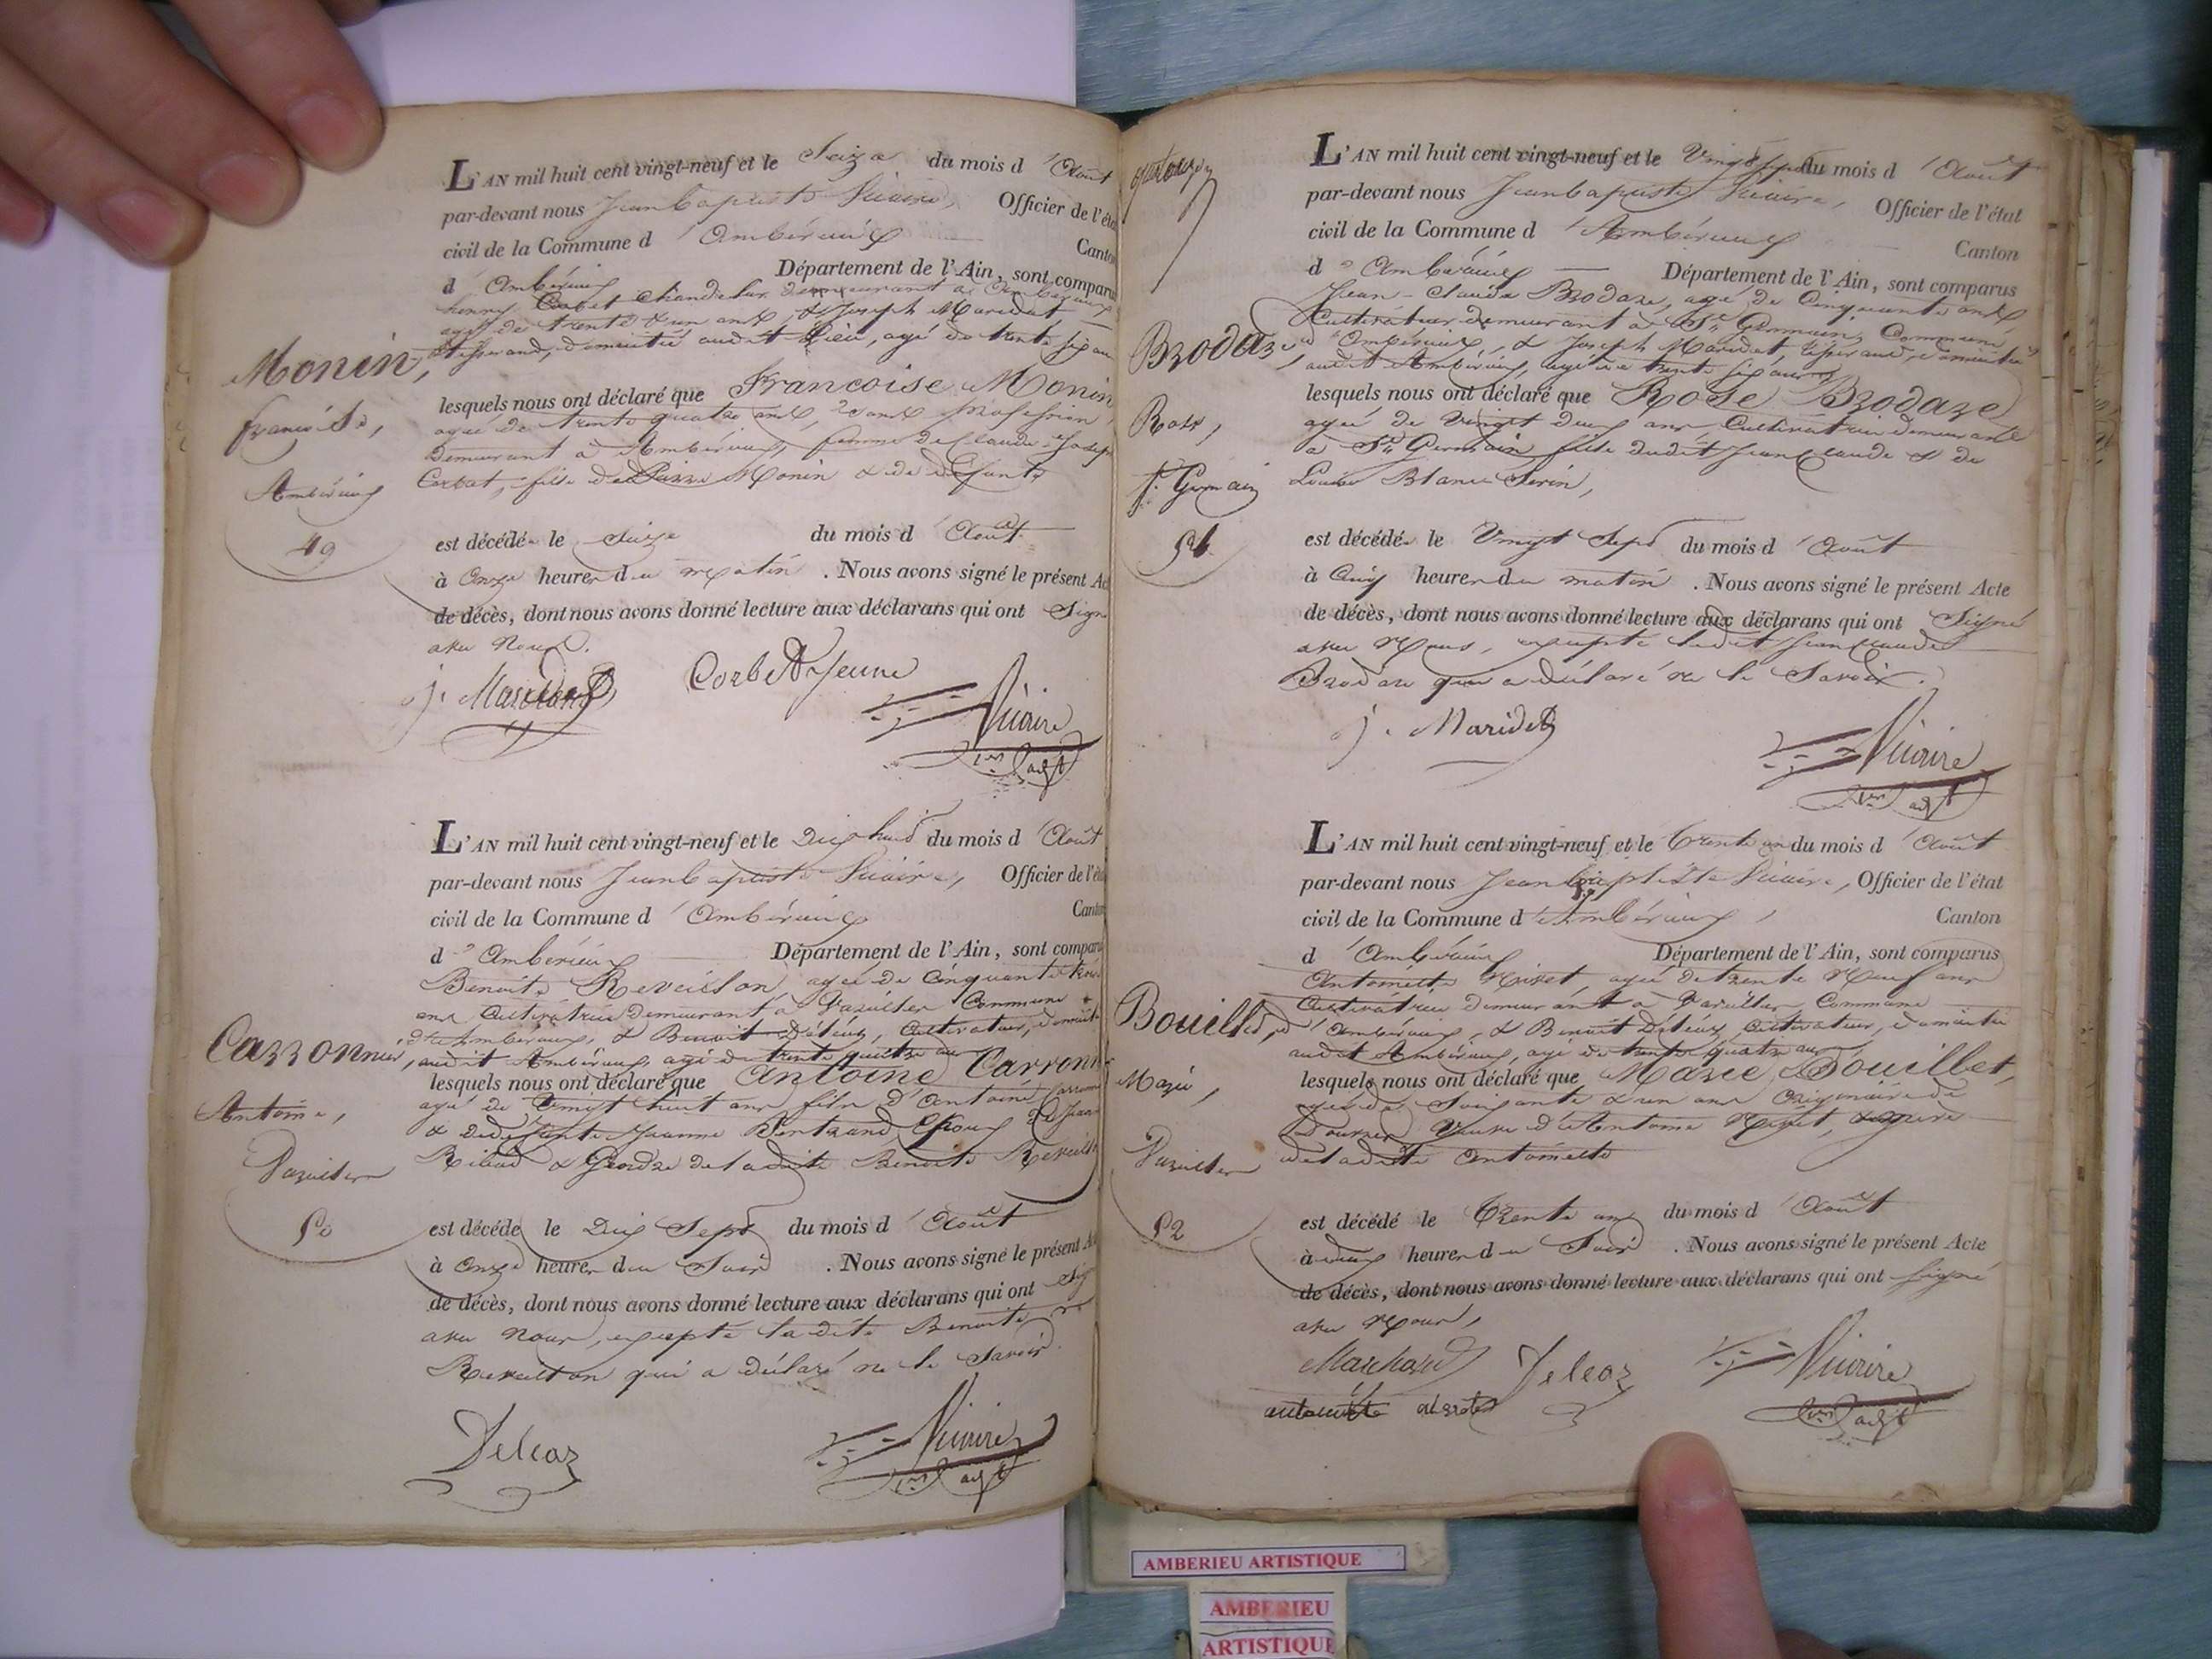 L'AN mil huit cent vingt-neuf et le Seize du mois d'Août
par-devant nous Jean baptiste Vicaire, Officier de l'éta
civil de la Commune d'Ambérieux Canton
d'Ambérieux Département de l'Ain, sont comparus
henry Corbet Chandelier demeurant à Ambérieux
agé de trente & un ans, & Joseph Maridat,
tisserand, domicilié audit Lieu, agé de trente six ans
Monin,
lesquels nous ont déclaré que Francoise Monin
agée de trente quatre ans, sans profession
françoise,
demeurant à Ambérieux, femme de Claude Joseph
Corbet, fille de Pierre Monin & de defunte
Ambérieux
49
est décédée le Seize du mois d'Août
à Onze heures du matin . Nous avons signé le présent Ac
de décès, dont nous avons donné lecture aux déclarans qui ont Signé
avec Nous.
j. Maridat Corbet Jeune Vicaire
1er adjt
L'AN mil huit cent vingt-neuf et le Dix huit du mois d'Août
par-devant nous Jean baptiste Vicaire, Officier de l'éta
civil de la Commune d'Ambérieux Canton
d'Ambérieux Département de l'Ain, sont comparu
Benoite Reveillon, agée de Cinquante trois
ans Cultivatrice demeurant à Vareilles Commune
d'Ambérieux, & Benoit Déléaz, Cultivateur, domicilié
Carronnier, audit Ambérieux, agé de trente quatre ans
lesquels nous ont déclaré que Antoine Carronn
agé de Vingt huit ans fils d'Antoine Carronn
Antoine,
& de defunte Jeanne Bertrand, Epoux de Jean
Ribod & Gendre de ladite Benoite Reveillon
Vareilles
50
est décédé le Dix Sept du mois d'Août
à Onze heures du Soir . Nous avons signé le présent Ac
de décès, dont nous avons donné lecture aux déclarans qui ont Sign
avec Nous, excepté ladite Benoite
Reveillon qui a déclaré ne le Savoir.
Deleaz Vicaire
1er adjt
L'AN mil huit cent vingt-neuf et le Vingt Sept du mois d'Août
par-devant nous Jean baptiste Vicaire, Officier de l'état
civil de la Commune d'Ambérieux Canton
d'Ambérieux Département de l'Ain, sont comparus
Jean-Claude Brodaze, agé de Cinquante ans
Cultivateur demeurant à St. Germain, Commune
Brodaze, d'Ambérieux, & Joseph Maridat, tisserand, domicilié
audit Ambérieux, agé de trente six ans
lesquels nous ont déclaré que Rose Brodaze
Rose,
agée de Vingt deux ans Cultivatrice demeurant
à St. Germain fille dudit Jean Claude & de
St. Germain
Louise Blanc Serin,
51
est décédée le Vingt Sept du mois d'Août
à Cinq heures du matin . Nous avons signé le présent Acte
de décès, dont nous avons donné lecture aux déclarans qui ont Signé
avec Nous, excepté ledit Jean Claude
Brodaze qui a déclaré ne le Savoir.
j. Maridat Vicaire
1er adjt
L'AN mil huit cent vingt-neuf et le trente un du mois d'Août
par-devant nous Jean baptiste Vicaire, Officier de l'état
civil de la Commune d'Ambérieux, Canton
d'Ambérieux Département de l'Ain, sont comparus
Antoinette agée de trente Neuf ans
Cultivatrice demeurant à Vareilles Commune
Bouillet, d'Ambérieux, & Benoit Déléaz Cultivateur, domicilié
audit Ambérieux, agé de trente quatre ans
lesquels nous ont déclaré que Marie Bouillet,
Marie,
agée de Soixante & un ans Originaire de
Veuve d'Antoine & mère
Vareilles
de ladite Antoinette
52
est décédé le Trente un du mois d'Août
à heures du Soir . Nous avons signé le présent Acte
de décès, dont nous avons donné lecture aux déclarans qui ont Signé
avec Nous,
Deleaz Vicaire
1er adjt
AMBERIEU ARTISTIQUE
AMBERIEU
ARTISTIQUE